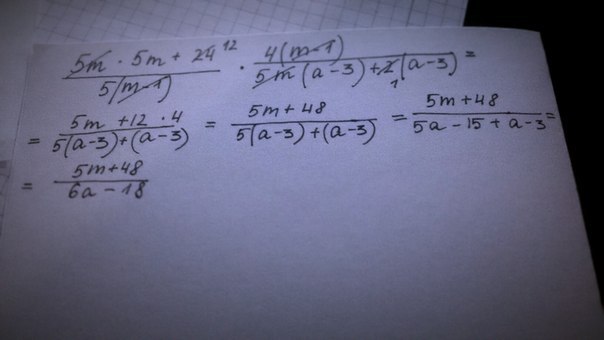 (5m · 5m + 24 12)/(5(m-1)) · (4(m-1))/(5m(a-3)+2 1(a-3)) =
= (5m + 12 · 4)/(5(a-3)+(a-3)) = (5m + 48)/(5(a-3)+(a-3)) = (5m + 48)/(5a - 15 + a - 3) =
= (5m+48)/(6a - 18)